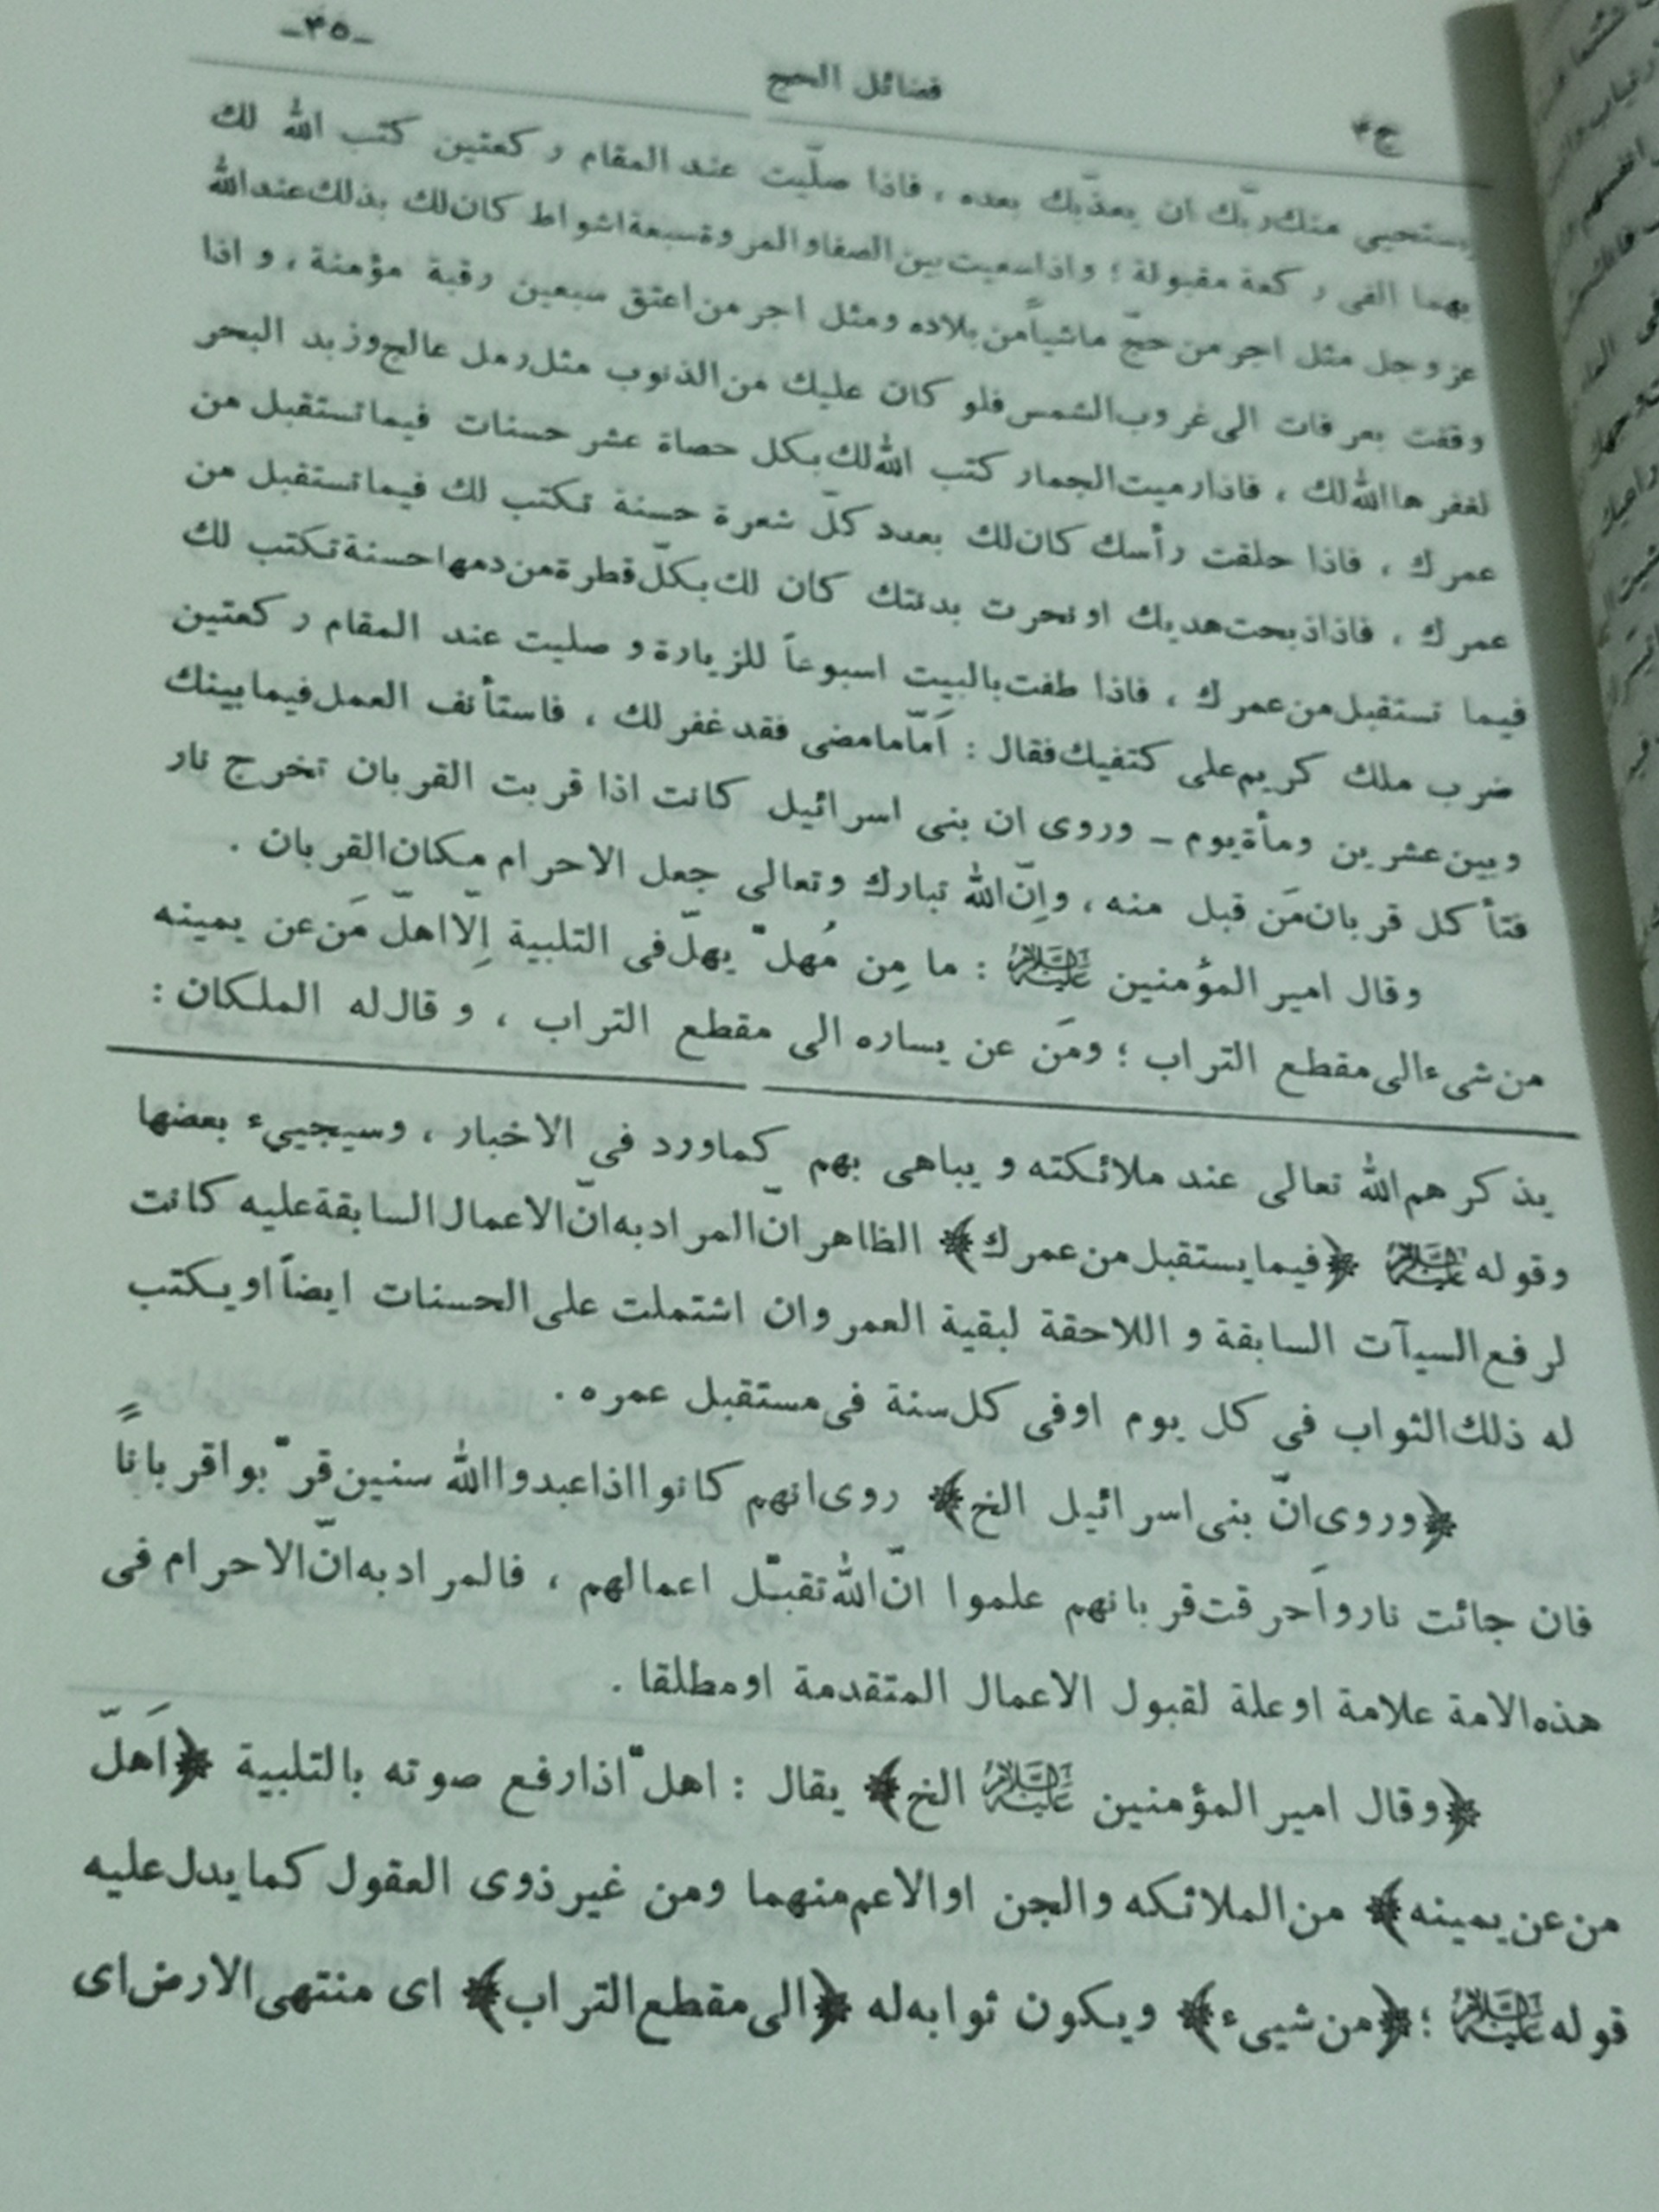 ج۴
فضائل الحج
ـ۳۵ـ
يستحيي منك ربّك ان يعذّبك بعده ، فاذا صلّيت عند المقام ركعتين كتب الله لك
بهما الفى ركعة مقبولة ؛ واذا سعيت بين الصفا والمروة سبعة اشواط كان لك بذلك عند الله
عز وجل مثل اجر من حجّ ماشياً من بلاده ومثل اجر من اعتق سبعين رقبة مؤمنة ، و اذا
وقفت بعرفات الى غروب الشمس فلو كان عليك من الذنوب مثل رمل عالج وزبد البحر
لغفرها الله لك ، فاذا رميت الجمار كتب الله لك بكل حصاة عشر حسنات فيما تستقبل من
عمرك ، فاذا حلقت رأسك كان لك بعدد كلّ شعرة حسنة تكتب لك فيما تستقبل من
عمرك ، فاذا ذبحت هديك او نحرت بدنتك كان لك بكلّ قطرة من دمها حسنة تكتب لك
فيما تستقبل من عمرك ، فاذا طفت بالبيت اسبوعاً للزيارة و صليت عند المقام ركعتين
ضرب ملك كريم على كتفيك فقال : اَمّا ما مضى فقد غفر لك ، فاستأنف العمل فيما بينك
وبين عشرين ومأة يوم ــ وروى ان بنى اسرائيل كانت اذا قربت القربان تخرج نار
فتأكل قربان مَن قبل منه ، واِنّ الله تبارك وتعالى جعل الاحرام مكان القربان .
وقال امير المؤمنين عليه السلام : ما مِن مُهلّ يهلّ فى التلبية اِلّا اهلّ مَن عن يمينه
من شىء الى مقطع التراب ؛ ومَن عن يساره الى مقطع التراب ، و قال له الملكان :
يذكرهم الله تعالى عند ملائكته و يباهى بهم كما ورد في الاخبار ، وسيجيىء بعضها
وقوله عليه السلام ﴿فيما يستقبل من عمرك﴾ الظاهر انّ المراد به انّ الاعمال السابقة عليه كانت
لرفع السيآت السابقة و اللاحقة لبقية العمر وان اشتملت على الحسنات ايضاً او يكتب
له ذلك الثواب في كل يوم اوفى كل سنة فى مستقبل عمره .
﴿وروى انّ بنى اسرائيل الخ﴾ روى انهم كانوا اذا عبدوا الله سنين قرّبوا قرباناً
فان جائت نار واَحرقت قربانهم علموا انّ الله تقبّل اعمالهم ، فالمراد به انّ الاحرام فى
هذه الامة علامة او علة لقبول الاعمال المتقدمة او مطلقا .
﴿وقال امير المؤمنين عليه السلام الخ﴾ يقال : اهلّ اذا رفع صوته بالتلبية ﴿اَهلّ
من عن يمينه﴾ من الملائكه والجن او الاعم منهما ومن غير ذوى العقول كما يدل عليه
قوله عليه السلام ؛ ﴿من شيىء﴾ ويكون ثوابه له ﴿الى مقطع التراب﴾ اى منتهى الارض اى